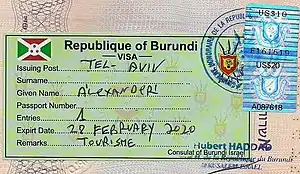 Republic of Burundi
VISA
Issuing Post TEL-AVIV
Surname
Given Name ALEXANDER
Passport Number
Entries 1
Expirt Date 28 FEBRUARY 2020
Remarks TOURISME
Hubert HADDAD
Consulat of Burundi Israel
US$10
E161519
US$20
A087618